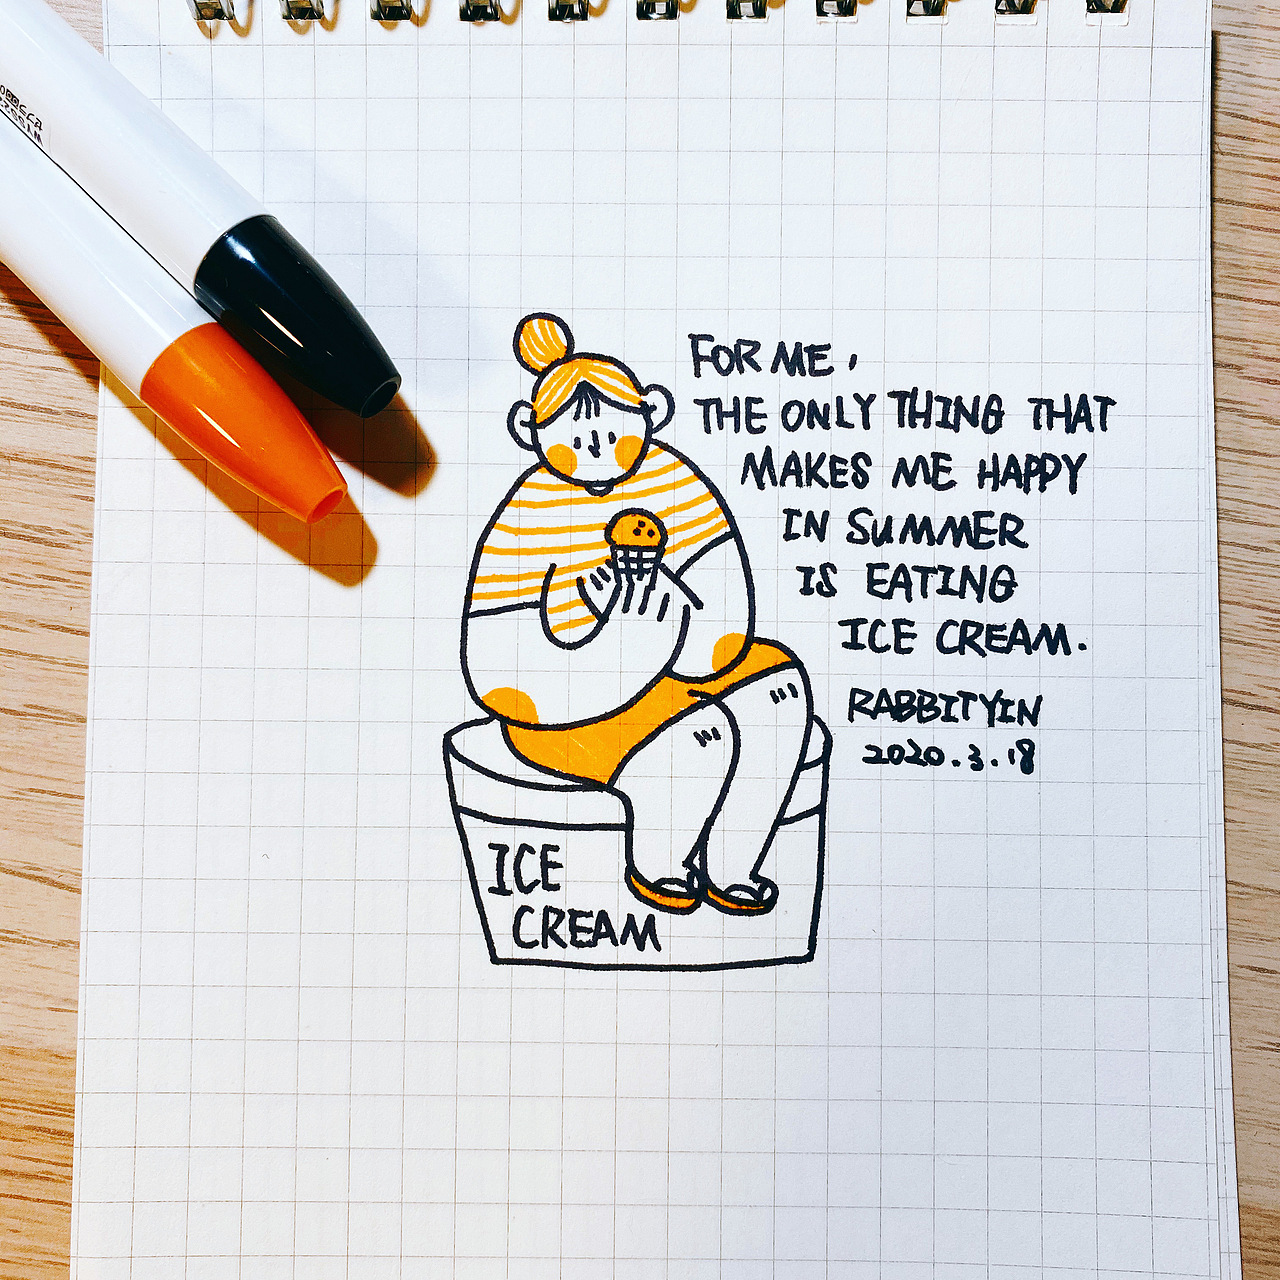 FOR ME,
THE ONLY THING THAT
MAKES ME HAPPY
IN SUMMER
IS EATING
ICE CREAM.
RABBITYIN
2020.3.18
ICE
CREAM